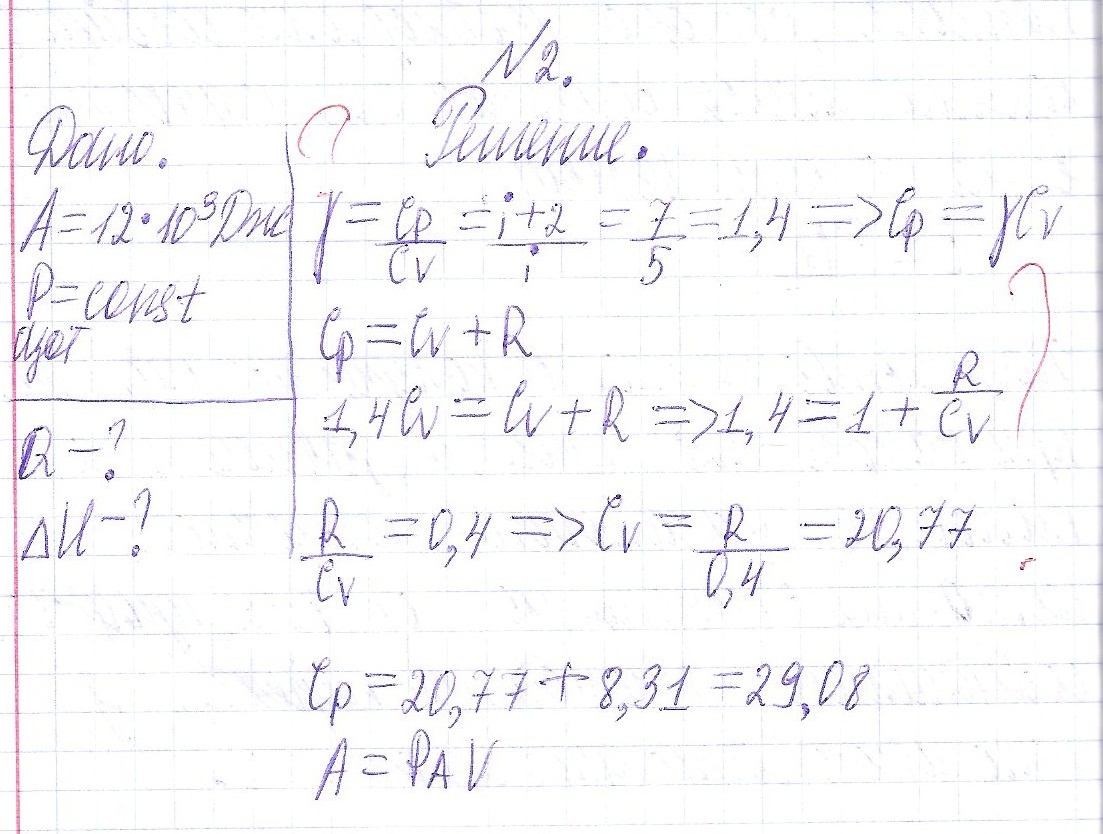 N2.
Дано.
A=12·10³Дж
P=const
азот
Q-?
ΔU-?
Решение.
γ = Cp/Cv = i+2/i = 7/5 = 1,4 => Cp = γCv
Cp = Cv + R
1,4Cv = Cv + R => 1,4 = 1 + R/Cv
R/Cv = 0,4 => Cv = R/0,4 = 20,77
Cp = 20,77 + 8,31 = 29,08
A = PΔV